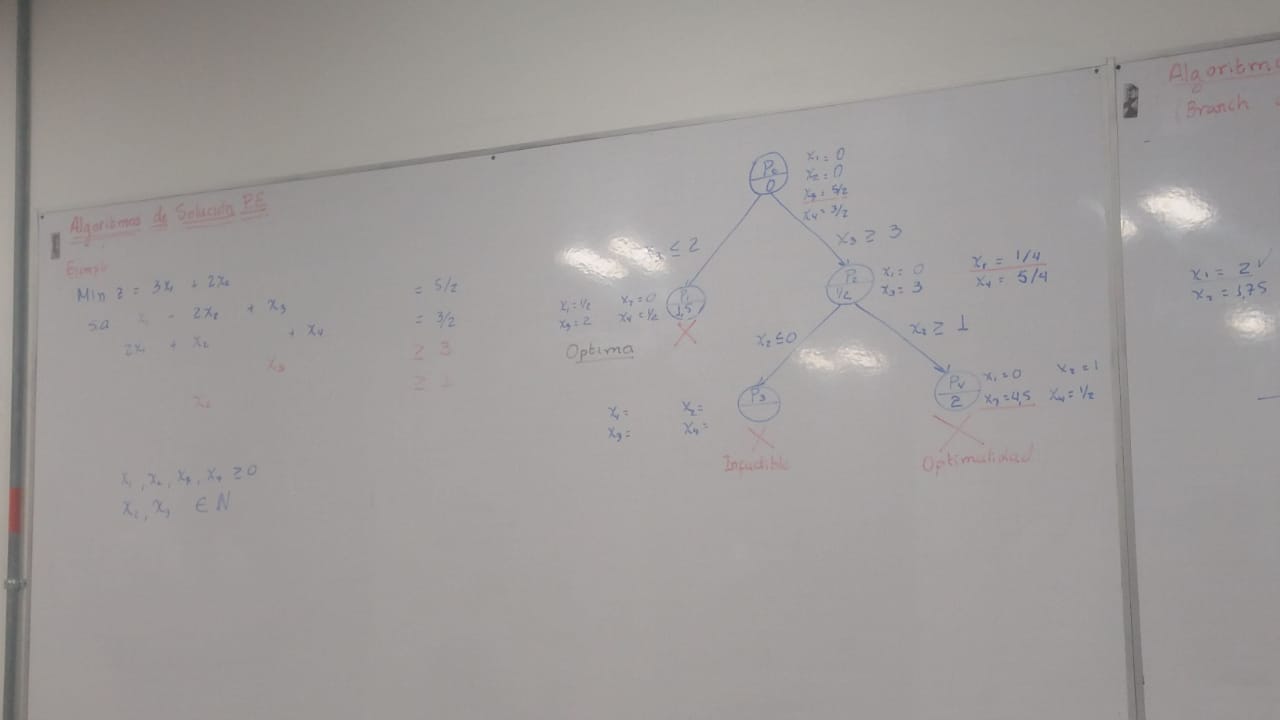 Algoritmos de Solución P.E
Ejemplo
Min z = 3x₁ + 2x₂
s.a x₁ - 2x₂ + x₃ = 5/2
2x₁ + x₂ + x₄ = 3/2
x₃ ≥ 3
x₂ ≥ 1
x₁, x₂, x₃, x₄ ≥ 0
x₂, x₃ ∈ N
P₀
0
x₁ = 0
x₂ = 0
x₃ = 5/2
x₄ = 3/2
≤ 2
x₃ ≥ 3
1,5
x₁ = 1/2 x₂ = 0
x₃ = 2 x₄ = 1/2
Optima
P₂
1/2
x₁ = 0
x₃ = 3
= 1/4
x₄ = 5/4
x₂ ≤ 0
x₂ ≥ 1
P₃
x₁ = x₂ =
x₃ = x₄ =
Infactible
P₄
2
x₁ = 0 x₂ = 1
x₃ = 4,5 x₄ = 1/2
Optimalidad
(Branch
x₁ = 2 ✓
x₂ = 1,75